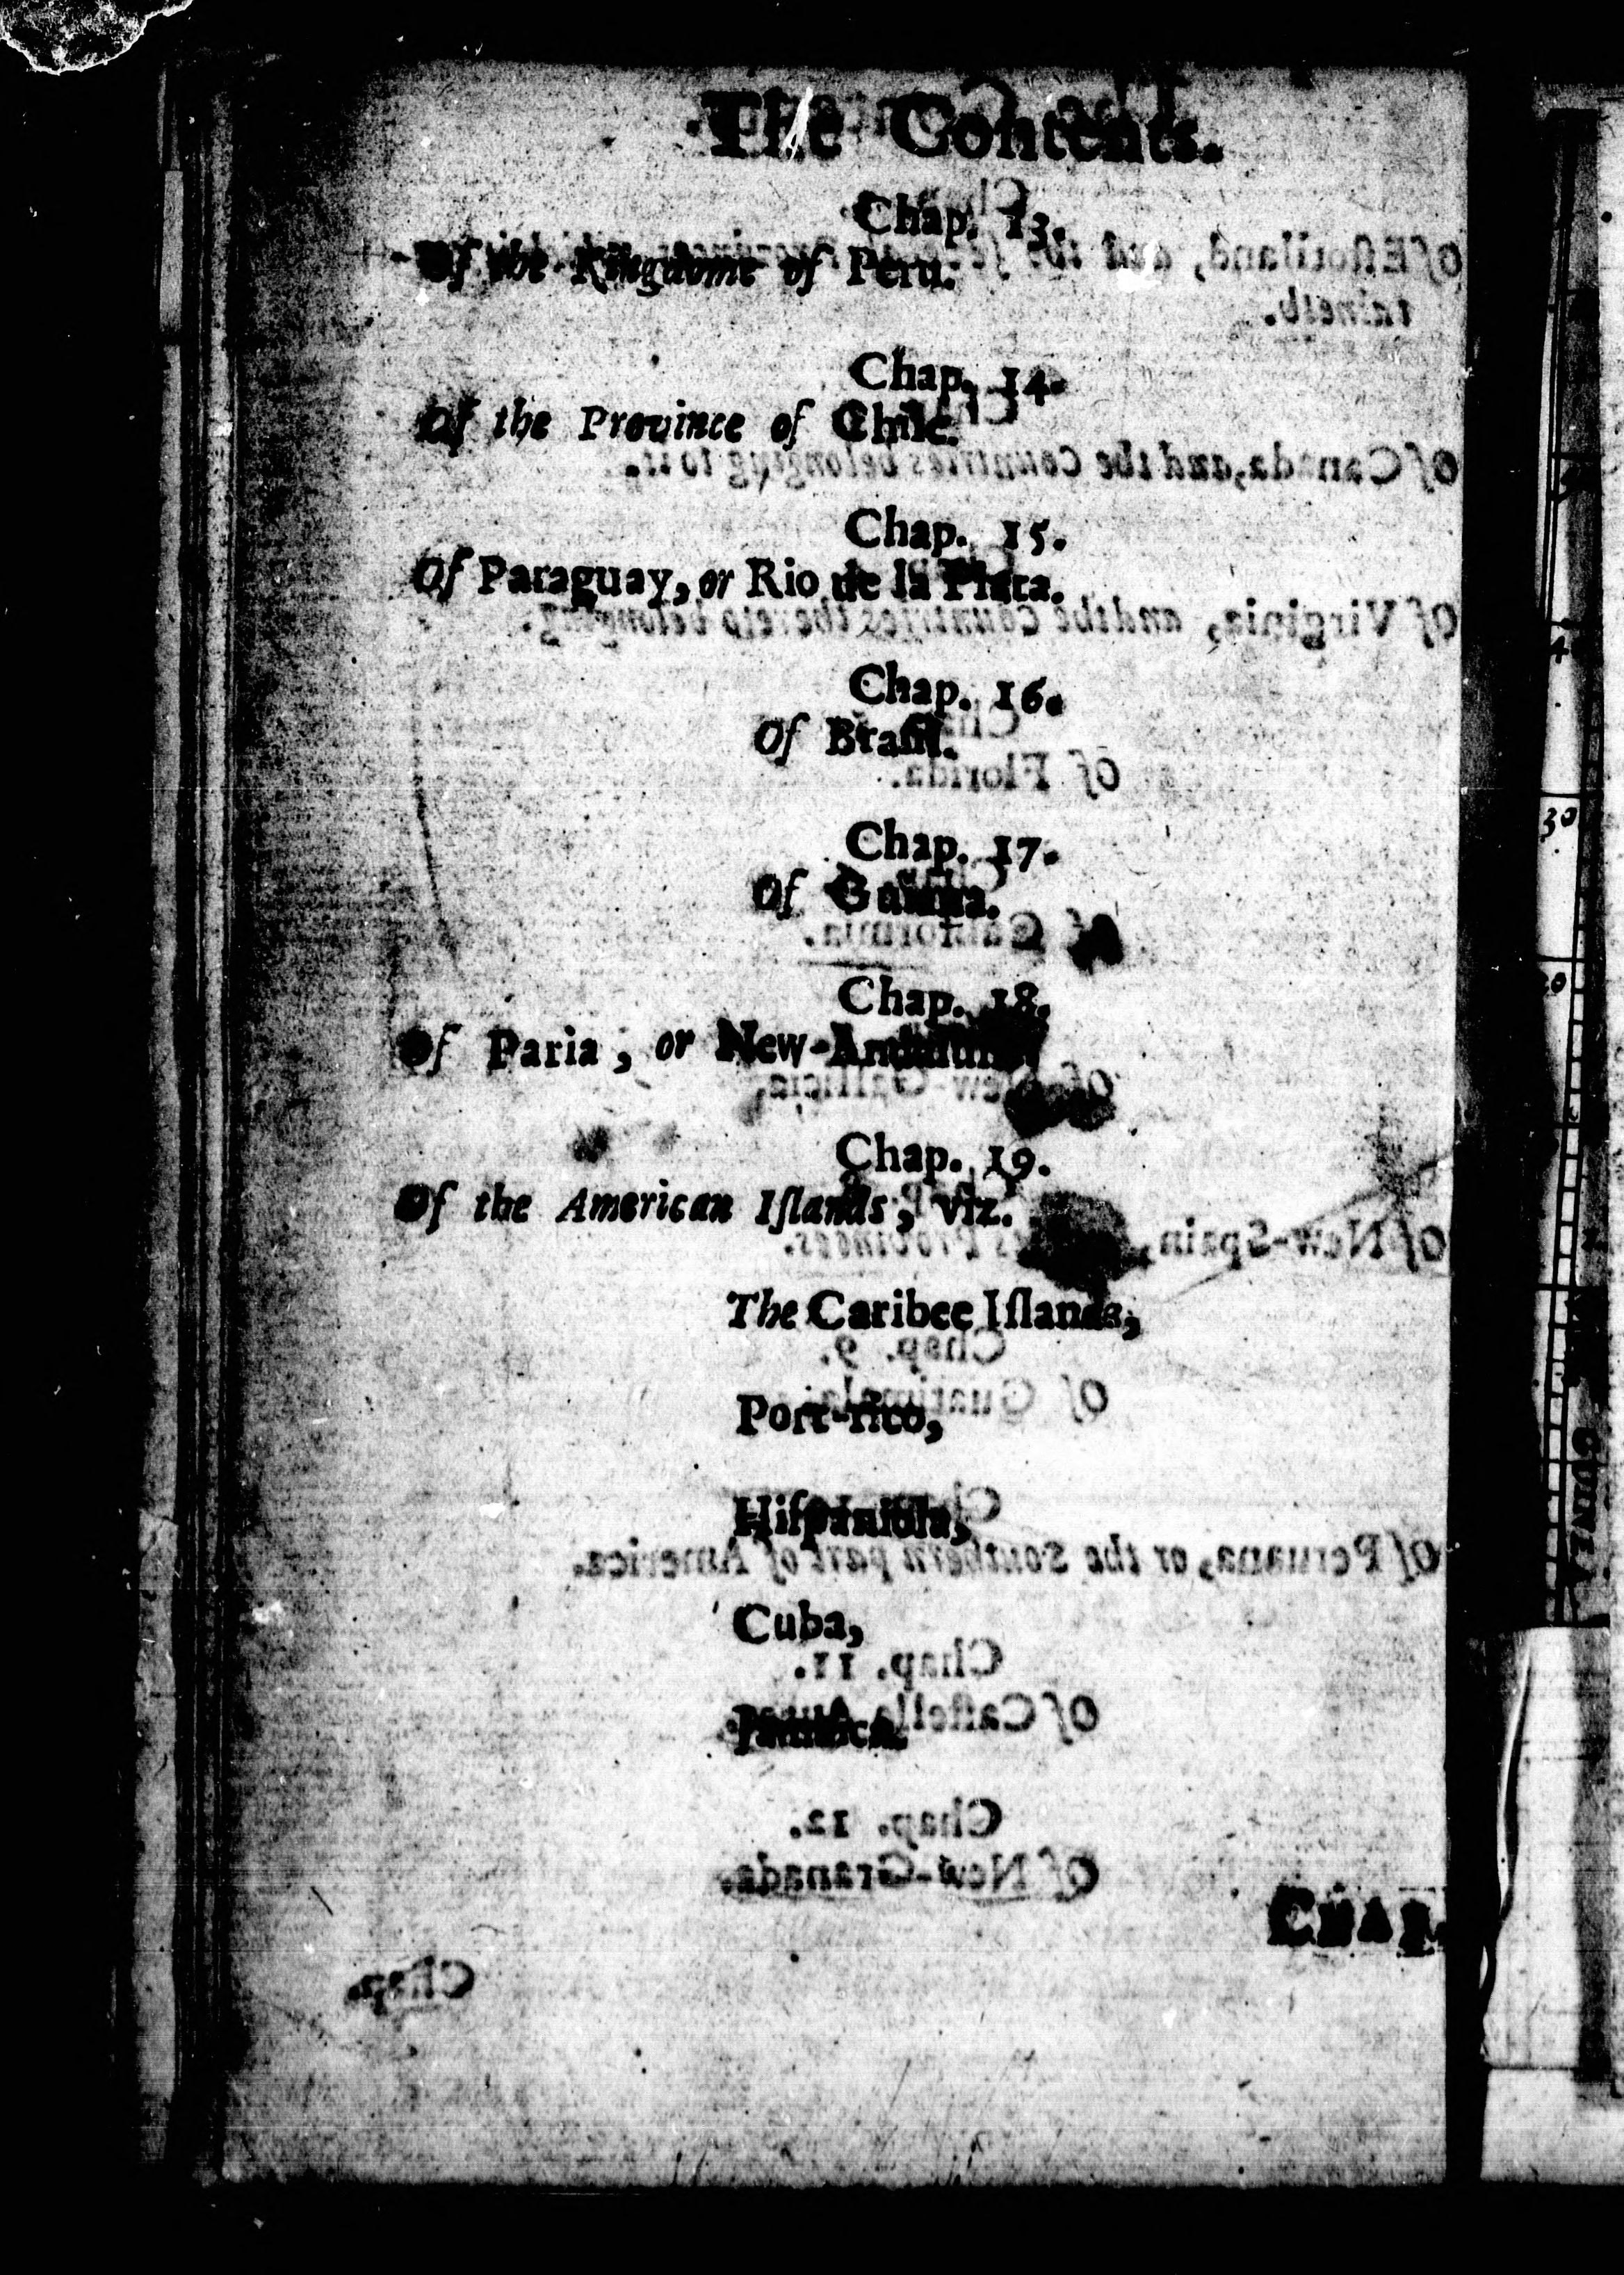 The Contents.
Chap. 13.
Of the Kingdome of Peru.
Chap. 14.
Of the Province of Chile.
Chap. 15.
Of Paraguay, or Rio de la Plata.
Chap. 16.
Of Braſil.
Chap. 17.
Of Guiana.
Chap. 18.
Of Paria, or New-Andaluſia.
Chap. 19.
Of the American Iſlands, viz.
The Caribee Iſlands,
Port-rico,
Hiſpaniola,
Cuba,
Jamaica.
CHAP.
30
GUINEA